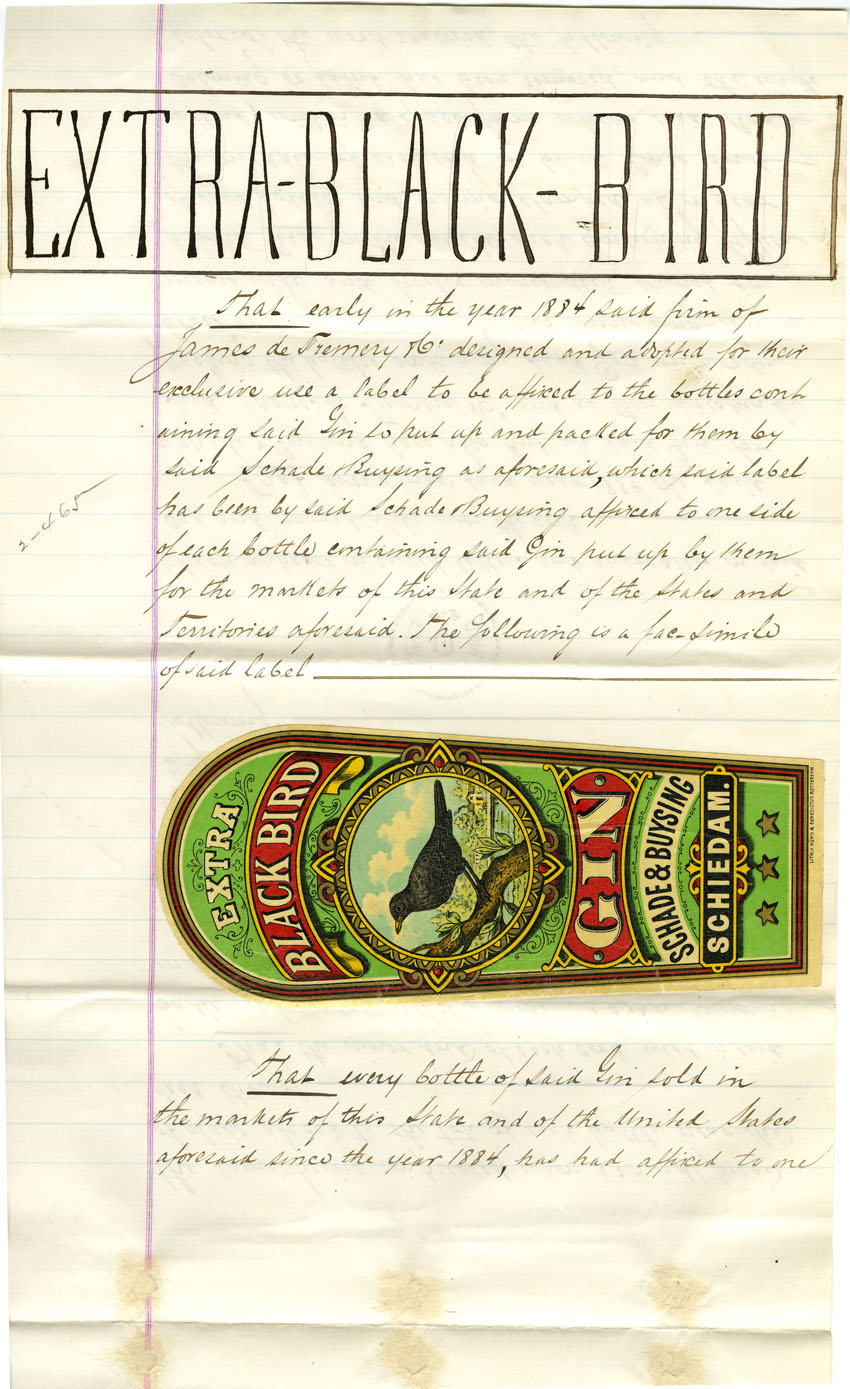 EXTRA-BLACK-BIRD
That early in the year 1884 said firm of
James de Fremery & Co. designed and adopted for their
exclusive use a label to be affixed to the bottles cont
aining said Gin so put up and packed for them by
said Schade & Buysing as aforesaid, which said label
has been by said Schade & Buysing affixed to one side
of each bottle containing said Gin put up by them
for the markets of this State and of the States and
Territories aforesaid. The following is a fac-simile
of said label
2-465
EXTRA
BLACK BIRD
GIN
SCHADE & BUYSING
SCHIEDAM.
That every bottle of said Gin sold in
the markets of this State and of the United States
aforesaid since the year 1884, has had affixed to one